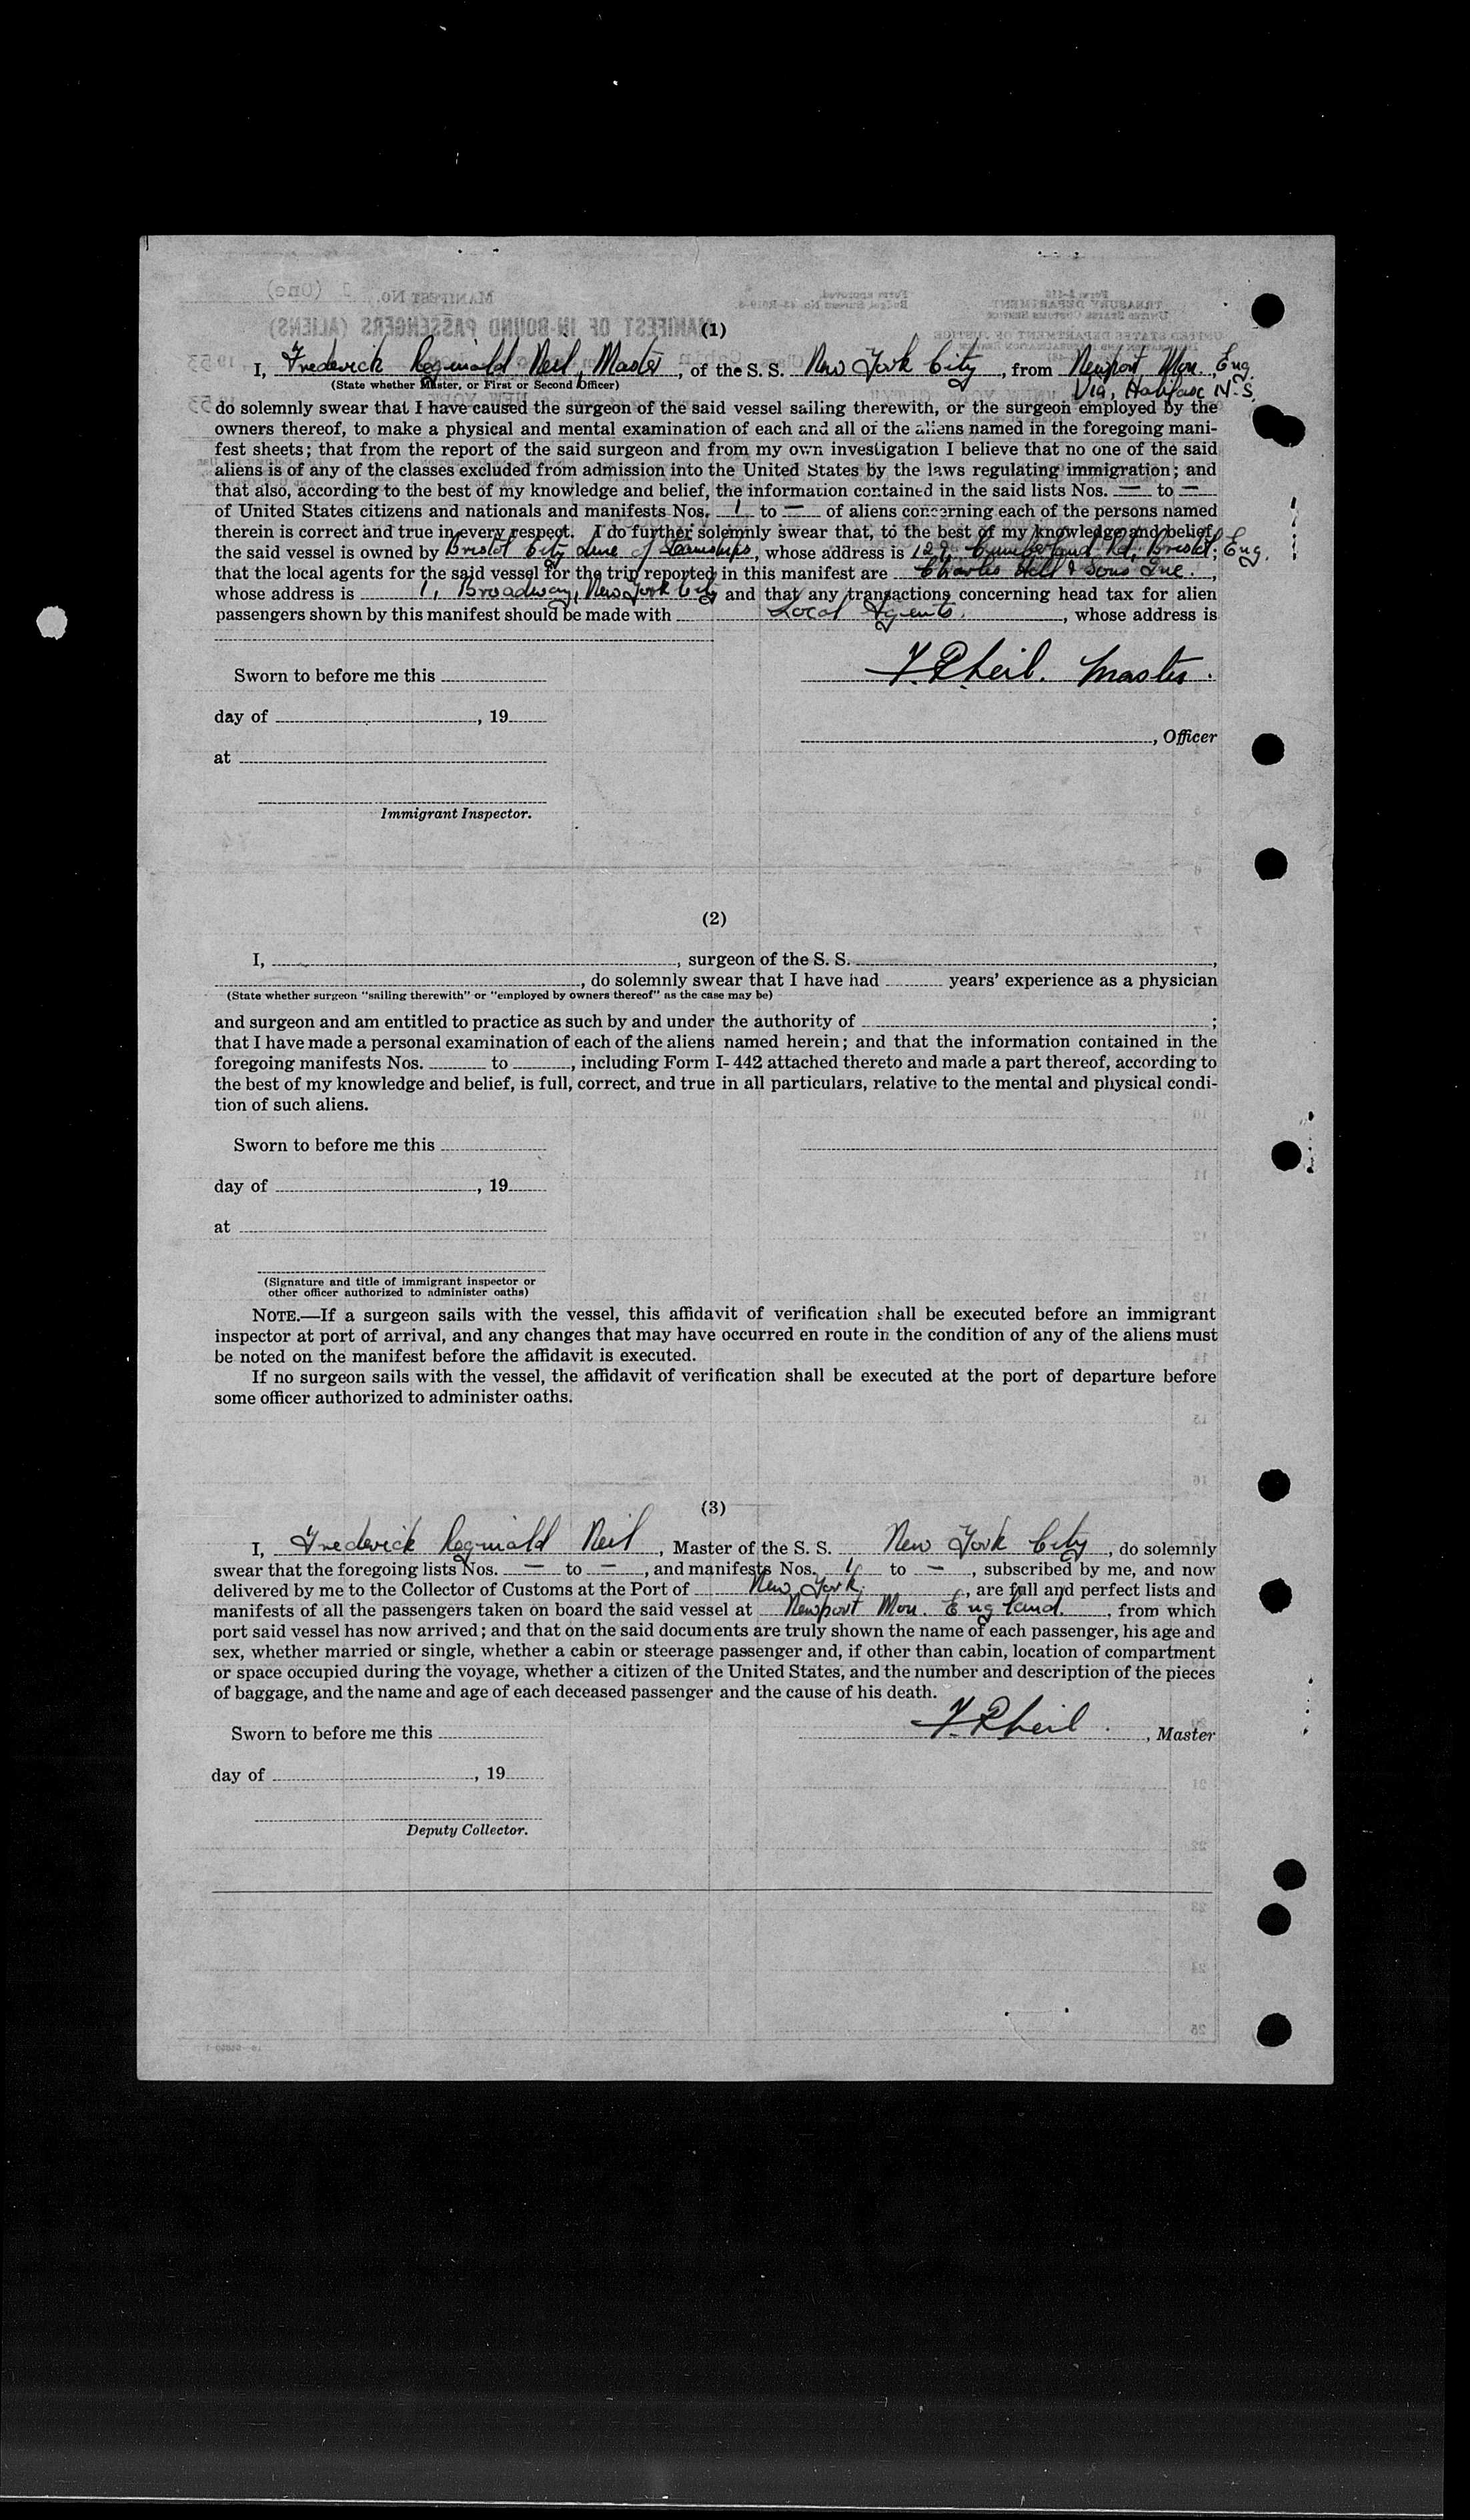 (1)
I, Frederick Reginald Neil, Master, of the S. S. New York City, from Newport, Mon., Eng.
(State whether Master, or First or Second Officer) Via, Halifax N.S.
do solemnly swear that I have caused the surgeon of the said vessel sailing therewith, or the surgeon employed by the
owners thereof, to make a physical and mental examination of each and all of the aliens named in the foregoing mani-
fest sheets; that from the report of the said surgeon and from my own investigation I believe that no one of the said
aliens is of any of the classes excluded from admission into the United States by the laws regulating immigration; and
that also, according to the best of my knowledge and belief, the information contained in the said lists Nos. — to —
of United States citizens and nationals and manifests Nos. 1 to — of aliens concerning each of the persons named
therein is correct and true in every respect. I do further solemnly swear that, to the best of my knowledge and belief,
the said vessel is owned by Bristol City Line of Steamships, whose address is 129, Cumberland Rd, Bristol; Eng.
that the local agents for the said vessel for the trip reported in this manifest are Charles Hill & Sons Inc.,
whose address is 1, Broadway, New York City and that any transactions concerning head tax for alien
passengers shown by this manifest should be made with Local Agents., whose address is
Sworn to before me this F. R. Neil. Master.
day of , 19
, Officer
at
Immigrant Inspector.
(2)
I, , surgeon of the S. S. ,
, do solemnly swear that I have had years' experience as a physician
(State whether surgeon "sailing therewith" or "employed by owners thereof" as the case may be)
and surgeon and am entitled to practice as such by and under the authority of ;
that I have made a personal examination of each of the aliens named herein; and that the information contained in the
foregoing manifests Nos. to , including Form I-442 attached thereto and made a part thereof, according to
the best of my knowledge and belief, is full, correct, and true in all particulars, relative to the mental and physical condi-
tion of such aliens.
Sworn to before me this
day of , 19
at
(Signature and title of immigrant inspector or
other officer authorized to administer oaths)
NOTE.—If a surgeon sails with the vessel, this affidavit of verification shall be executed before an immigrant
inspector at port of arrival, and any changes that may have occurred en route in the condition of any of the aliens must
be noted on the manifest before the affidavit is executed.
If no surgeon sails with the vessel, the affidavit of verification shall be executed at the port of departure before
some officer authorized to administer oaths.
(3)
I, Frederick Reginald Neil, Master of the S. S. New York City, do solemnly
swear that the foregoing lists Nos. — to —, and manifests Nos. 1 to —, subscribed by me, and now
delivered by me to the Collector of Customs at the Port of New York, are full and perfect lists and
manifests of all the passengers taken on board the said vessel at Newport Mon. England., from which
port said vessel has now arrived; and that on the said documents are truly shown the name of each passenger, his age and
sex, whether married or single, whether a cabin or steerage passenger and, if other than cabin, location of compartment
or space occupied during the voyage, whether a citizen of the United States, and the number and description of the pieces
of baggage, and the name and age of each deceased passenger and the cause of his death.
Sworn to before me this F. R. Neil., Master
day of , 19
Deputy Collector.